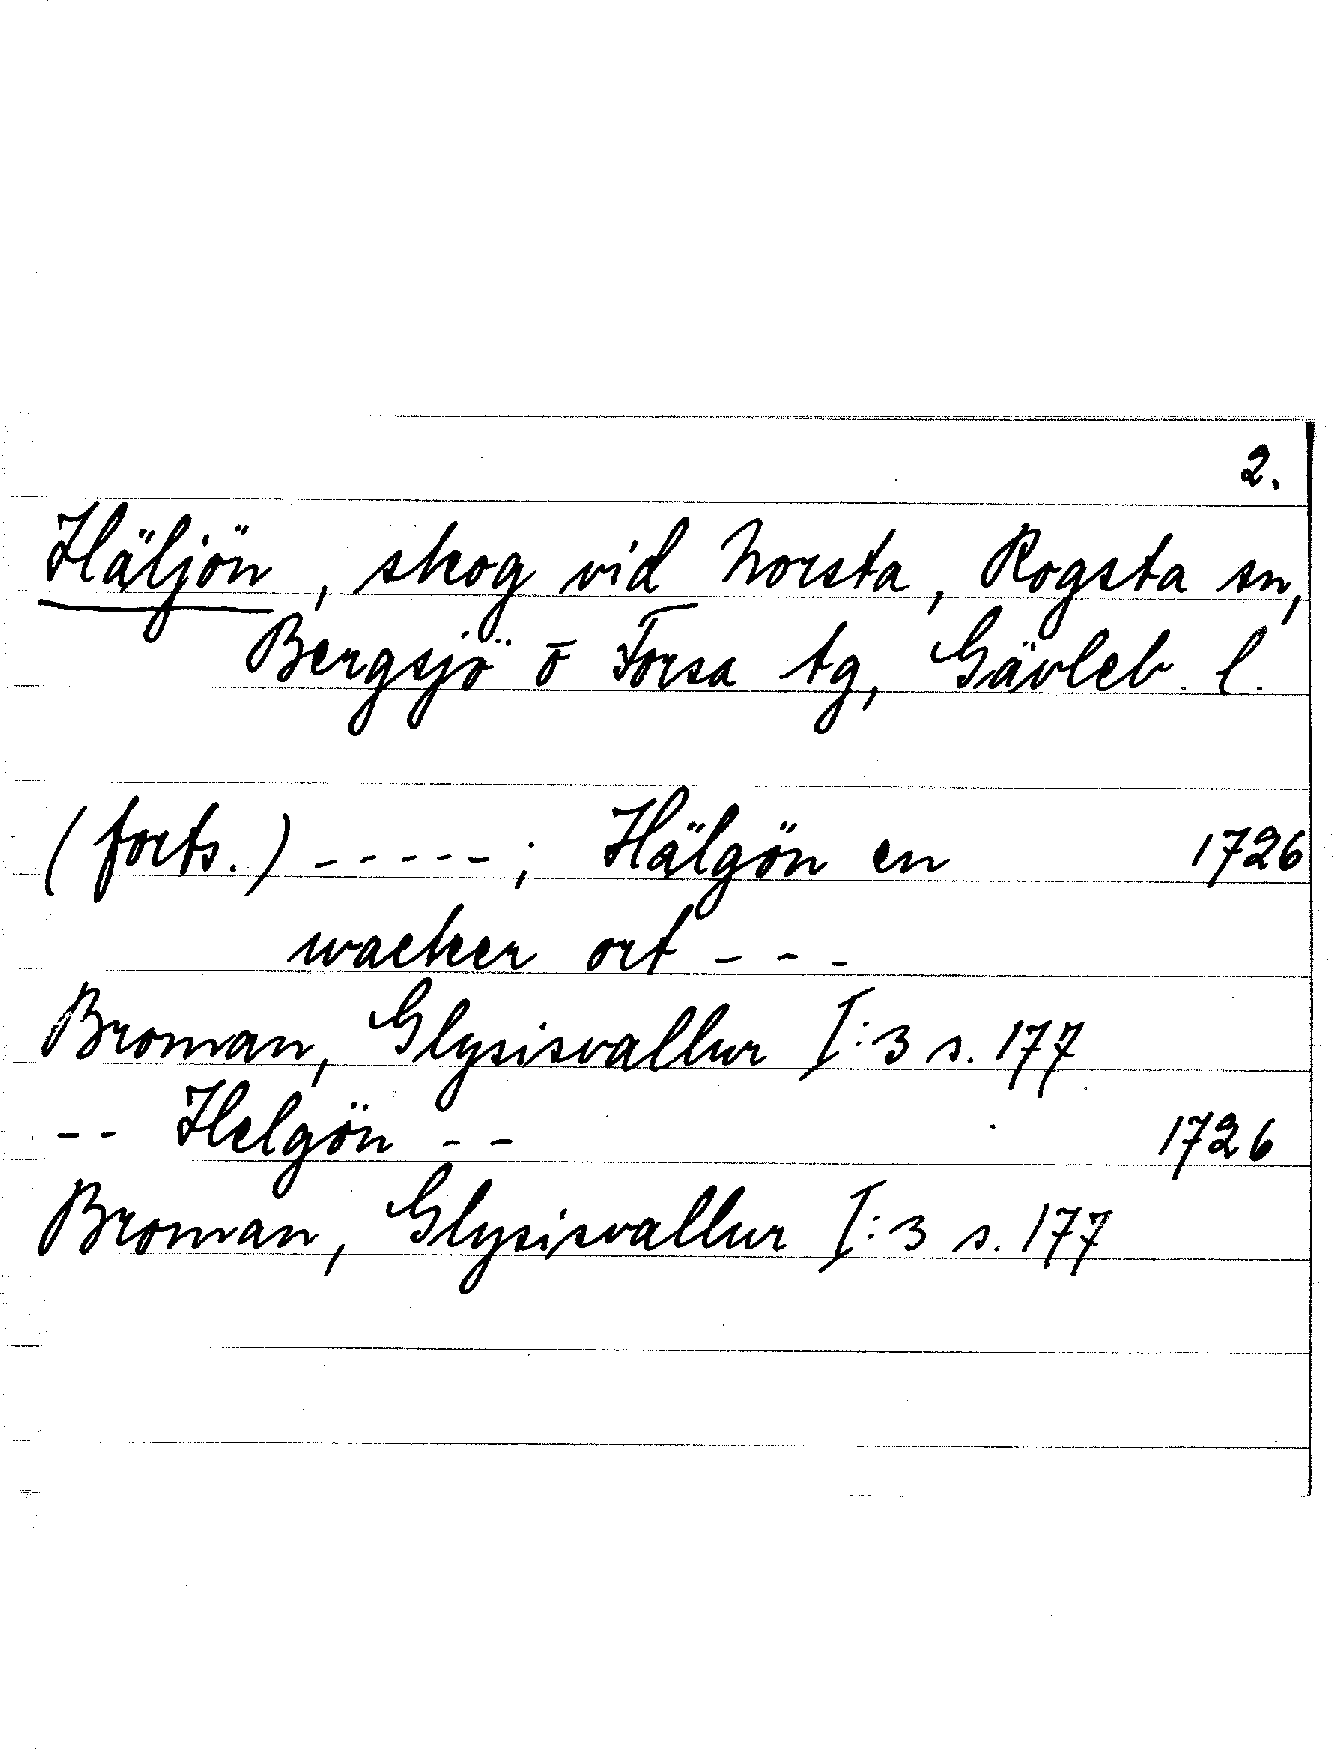 2.
Häljön, skog vid Norsta, Rogsta sn,
Bergsjö o Forsa tg, Gävleb. l.
(forts.) -----; Hälgön en 1726
wacker ort ---
Broman, Glysisvallur I:3 s. 177
-- Helgön -- 1726
Broman, Glysisvallur I:3 s. 177